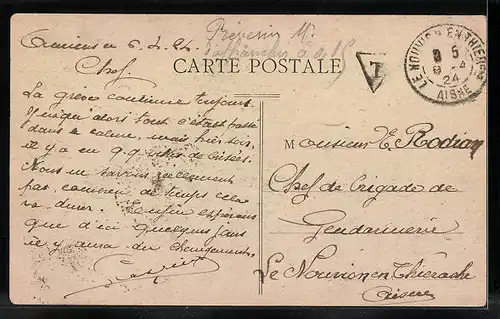 Amiens le 6. 4. 24.
Chef
La grève continue toujours.
Jusqu'alors tout s'était passé
dans le calme mais hier soir,
il y a eu q.q. vitres de brisées.
Nous ne savons réellement
pas combien de temps cela
va durer. Enfin espérons
que d'ici quelques jours
il y aura du changement.
CARTE POSTALE
T
LE NOUVION EN THIERACHE
24
AISNE
Monsieur E. Rodian
Chef de brigade de
Gendarmerie
Le Nouvion en Thiérache
Aisne